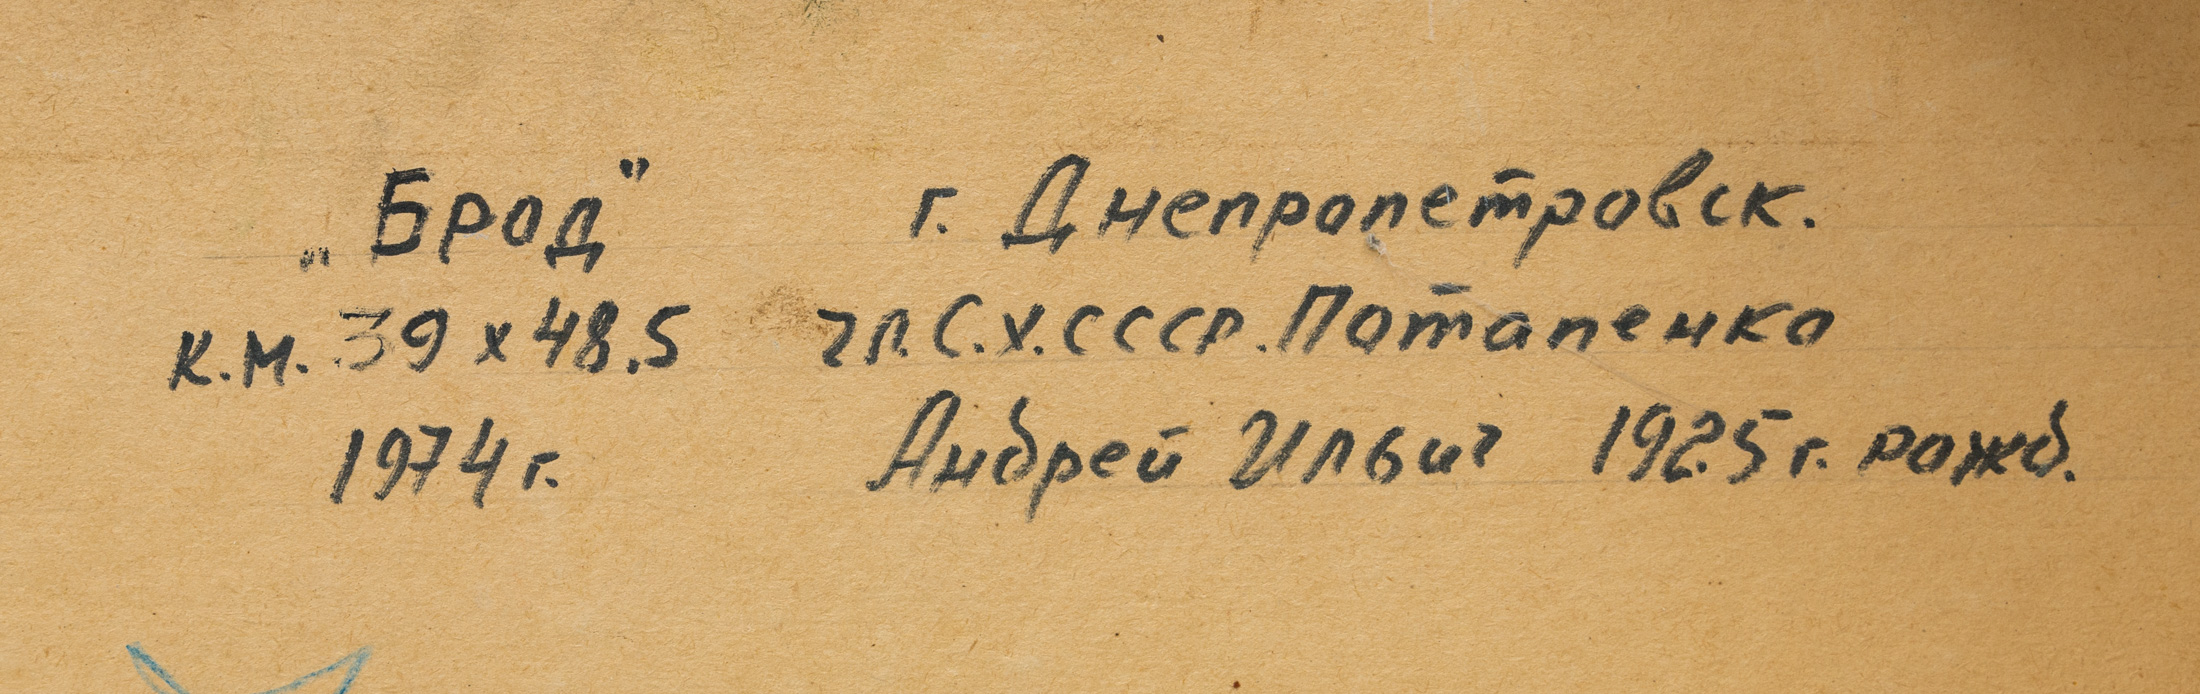 „Брод"
к.м. 39 х 48.5
1974 г.
г. Днепропетровск.
чл. С.Х. СССР. Потапенко
Андрей Ильич 1925 г. рожд.